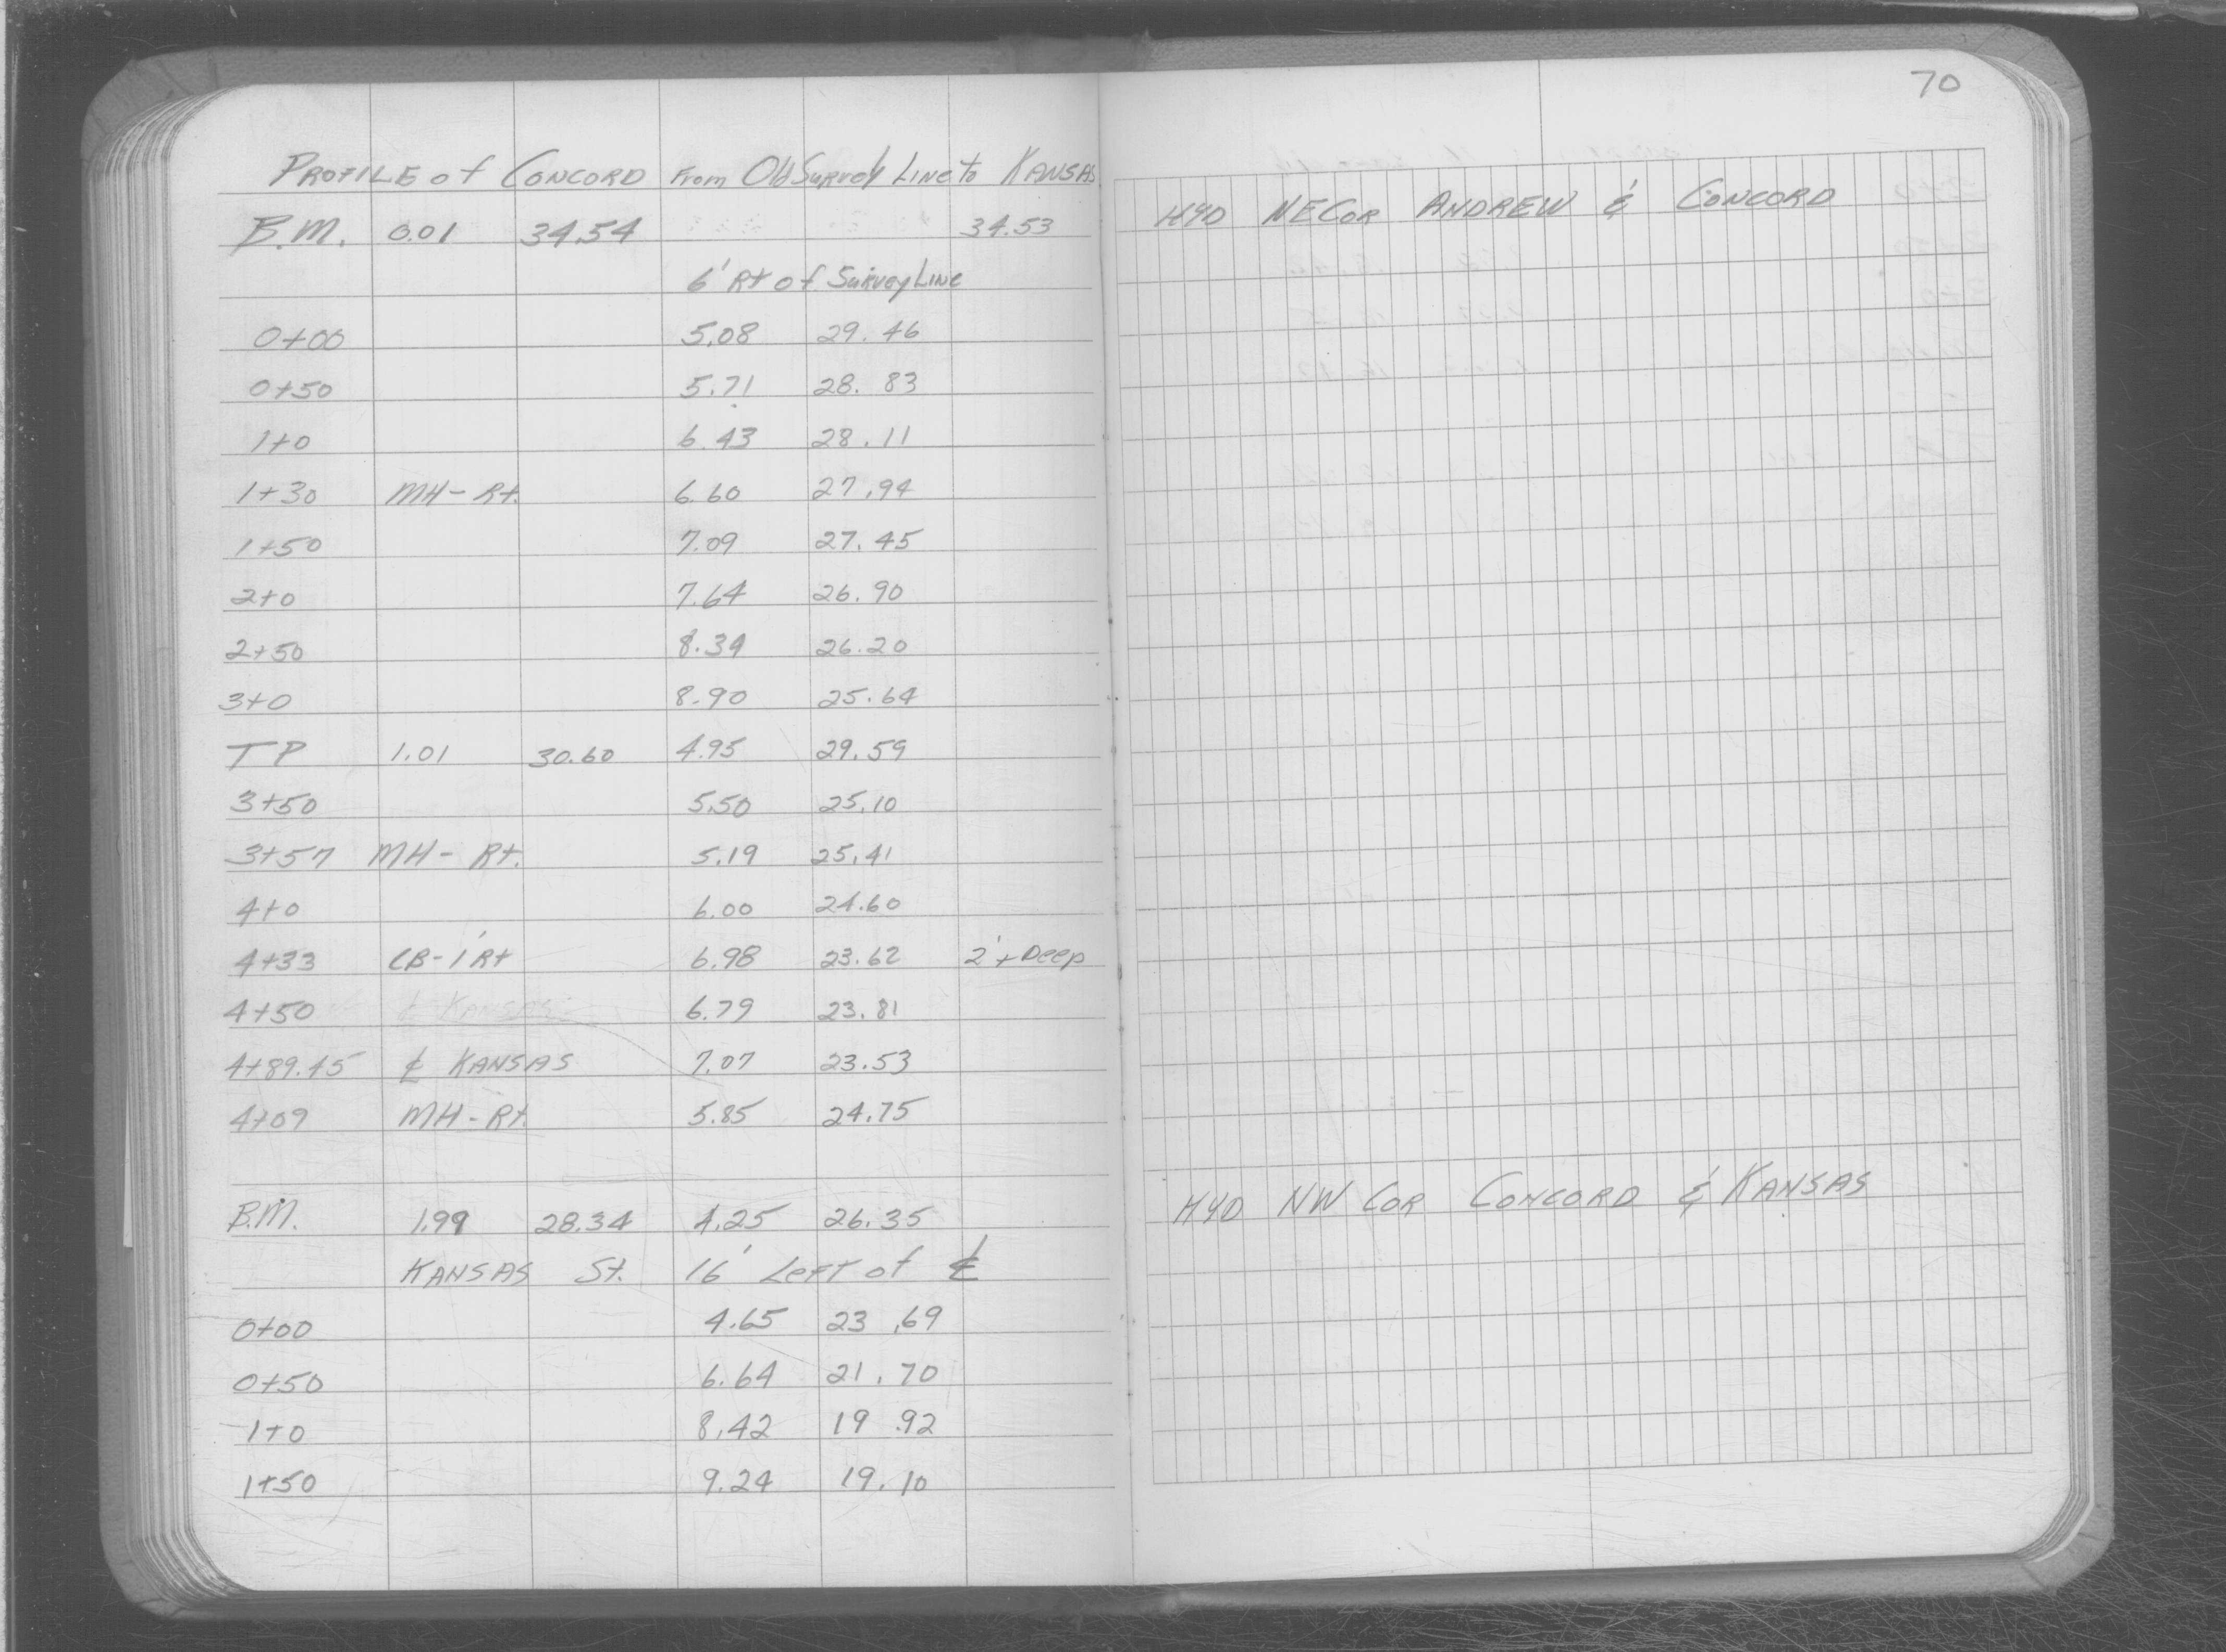 PROFILE of CONCORD From Old Survey Line to KANSAS
B.M. 0.01 34.54 34.53
6' Rt of Survey Line
0+00 5.08 29.46
0+50 5.71 28.83
1+0 6.43 28.11
1+30 MH - Rt. 6.60 27.94
1+50 7.09 27.45
2+0 7.64 26.90
2+50 8.34 26.20
3+0 8.90 25.64
TP 1.01 30.60 4.95 29.59
3+50 5.50 25.10
3+57 MH - Rt. 5.19 25.41
4+0 6.00 24.60
4+33 CB - 1' Rt 6.98 23.62 2'+ Deep
4+50 ℄ KANSAS 6.79 23.81
4+89.45 ℄ KANSAS 7.07 23.53
4+09 MH - Rt. 5.85 24.75
B.M. 1.99 28.34 4.25 26.35
KANSAS St. 16' Left of ℄
0+00 4.65 23.69
0+50 6.64 21.70
1+0 8.42 19.92
1+50 9.24 19.10
70
HYD NE Cor ANDREW & CONCORD
HYD NW COR CONCORD & KANSAS